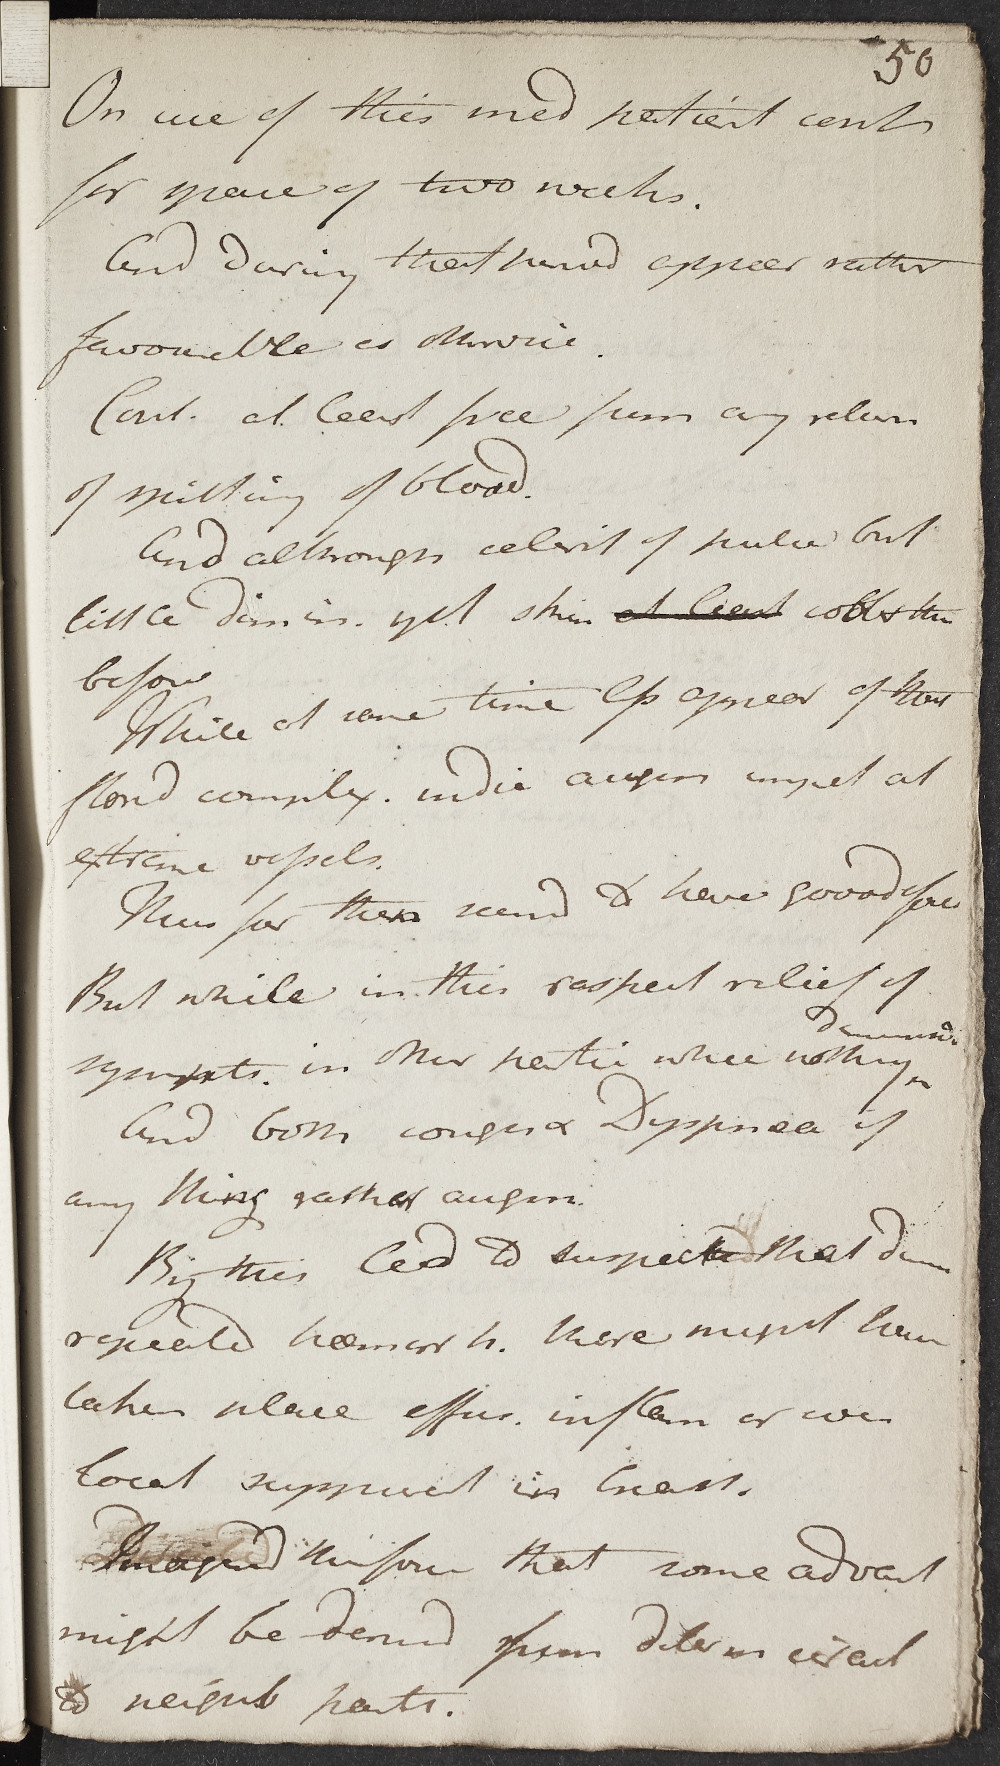 50
On use of this med patient cont
for space of two weeks.
And during that period appear rather
favourable as otherwise.
Cont. at least free from any return
of spitting of blood.
And although celerit of pulse but
little dimin. yet skin at least cooler than
before
While at same time less appear of that
florid complex. indic augm impet at
extreme vessels.
Thus far then seemd to have good effects
But while in this respect relief of
sympts. in other partic where nothing dimin
And both cough & Dyspnea if
any thing rather augm.
By this led to suspect that dur
repeated hæmorrh. there might have
taken place effus. inflam or even
local suppurat in breast.
Imagined therefore that some advant
might be derived from determ circul
to neighb parts.